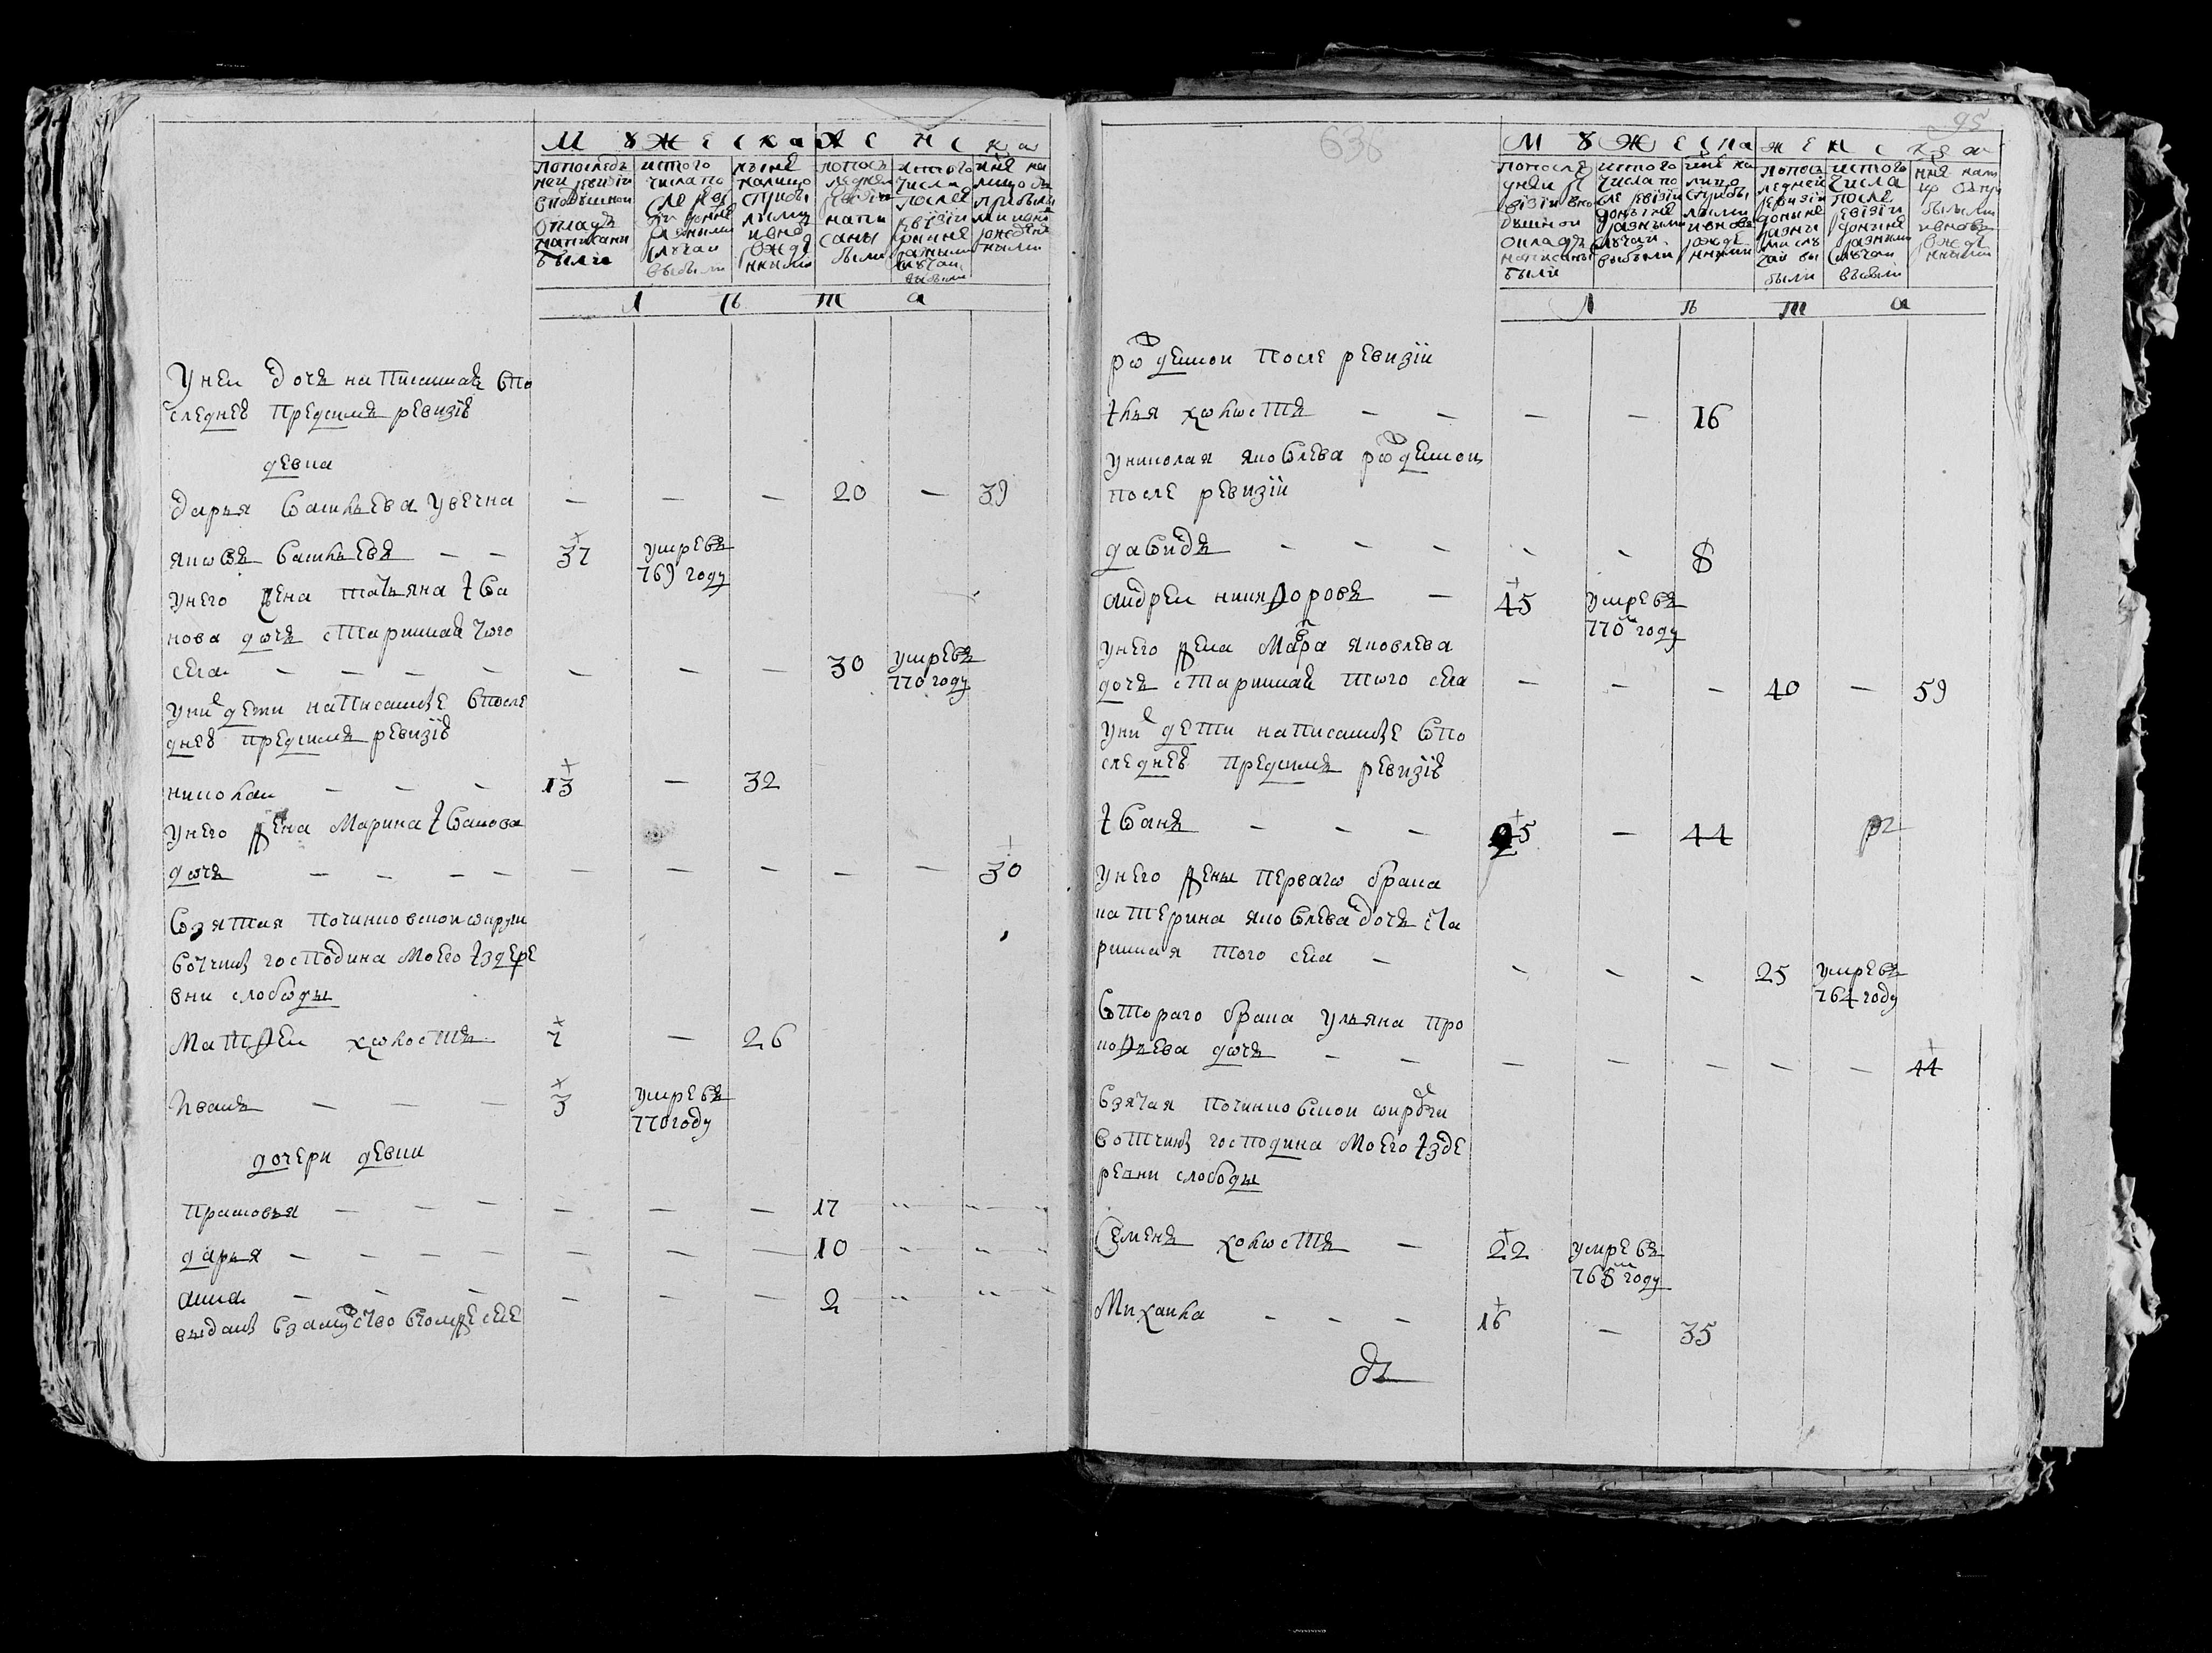 М У Ж Е С К А Ж Е Н С К А
попослед ней ревизiи вподушной окладъ написаны были
истого числа после ревизiи доныне разными случаи выбыли
ныне налицо сприбылыми ивновь рожденными
попоследней ревизiи написаны были
истого числа после ревизiи доныне разными случаи выбыли
ныне налицо сприбылыми ивновь рожденными
Л Ѣ Т А
Унеи дочь написанная впо
следнеи пред симъ ревизiи
девка
дарья василева увечна — — — 20 — 39
яковъ василевъ — — 37 умре въ
769 году
унего жена татьяна ива
нова дочь старинная того
села — — — — — — — 30 умре въ
770 году
уних дети написанные впосле
днеи пред симъ ревизiи
николаи — — — 13 — 32
унего жена Марина Иванова
дочь — — — — — — — — — 30
взятая починковскои округи
вотчины господина моего издере
вни слободы
Матфеи холостъ 7 — 26
Иванъ — — — 3 умре въ
770 году
дочери девки
прасковья — — — — — — 17
дарья — — — — — — — 10
анна — — — — — — 2
выданы взамужство втомже селе
638
95
М У Ж Е С К А Ж Е Н С К А
попоследнеи ревизiи вподушнои окладъ написаны были
истого числа после ревизiи доныне разными случаи выбыли
ныне налицо сприбылыми ивновь рожденными
попоследнеи ревизiи доныне разными случаи выбыли
истого числа после ревизiи доныне разными случаи выбыли
ныне налицо сприбылыми ивновь рожденными
Л Ѣ Т А
рожденнои после ревизiи
Илья холостъ — — — — 16
униколая яковлева рожденнои
после ревизiи
давидъ — — — - - 8
андреи никифоровъ — 45 умре въ
770м году
унего жена Марфа яковлева
дочь старинная того села — — — 40 — 59
уних дети написанные впо
следнеи пред симъ ревизiи
Иванъ — — — 25 — 44
унего жены перваго брака
катерина яковлева дочь ста
ринная того села — - - - 25 умре въ
764 году
втораго брака ульяна про
кофьева дочь — — — — — — — 44
взятая починковскои округи
вотчины господина моего изде
ревни слободы
Семенъ холостъ — 22 умре въ
768м году
Михаила — — — 16 — 35